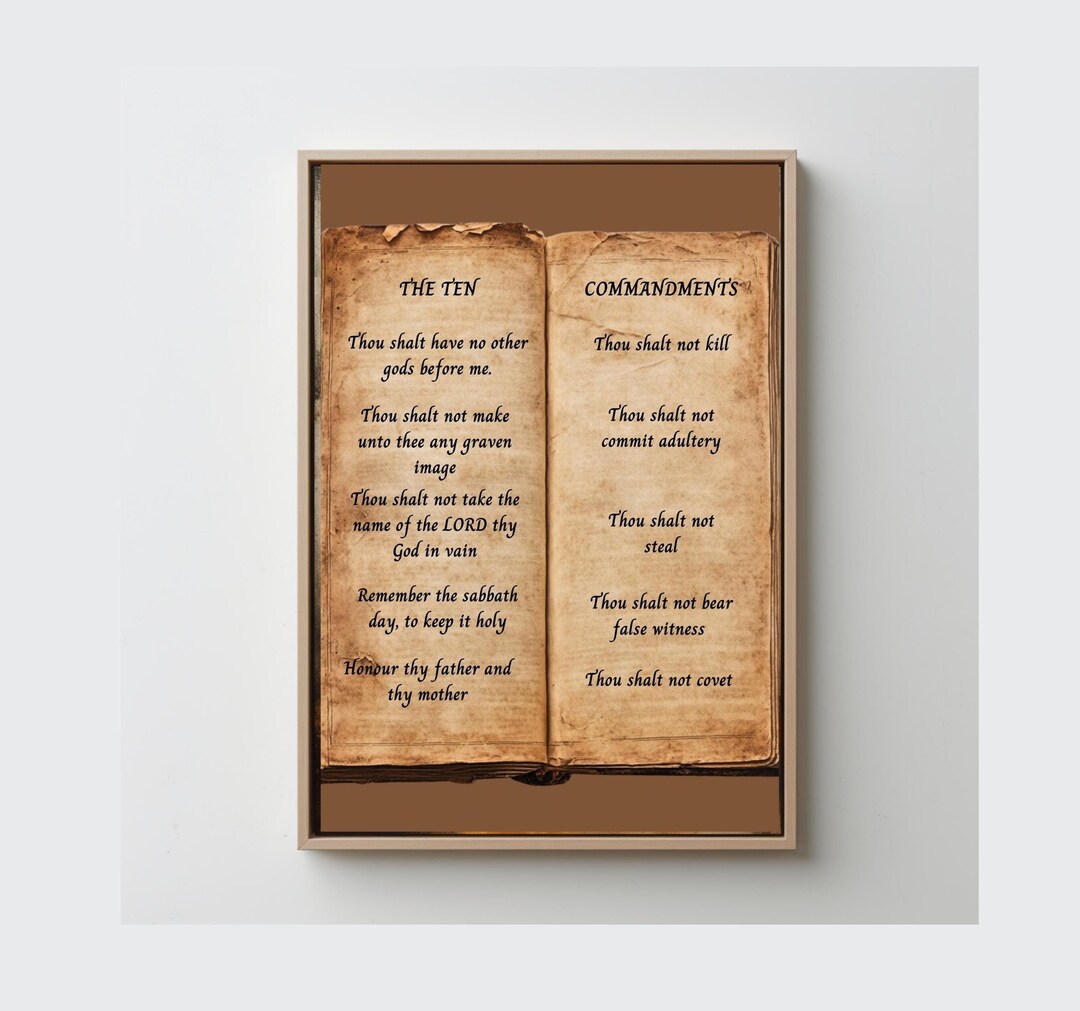 THE TEN
Thou shalt have no other
gods before me.
Thou shalt not make
unto thee any graven
image
Thou shalt not take the
name of the LORD thy
God in vain
Remember the sabbath
day, to keep it holy
Honour thy father and
thy mother
COMMANDMENTS
Thou shalt not kill
Thou shalt not
commit adultery
Thou shalt not
steal
Thou shalt not bear
false witness
Thou shalt not covet